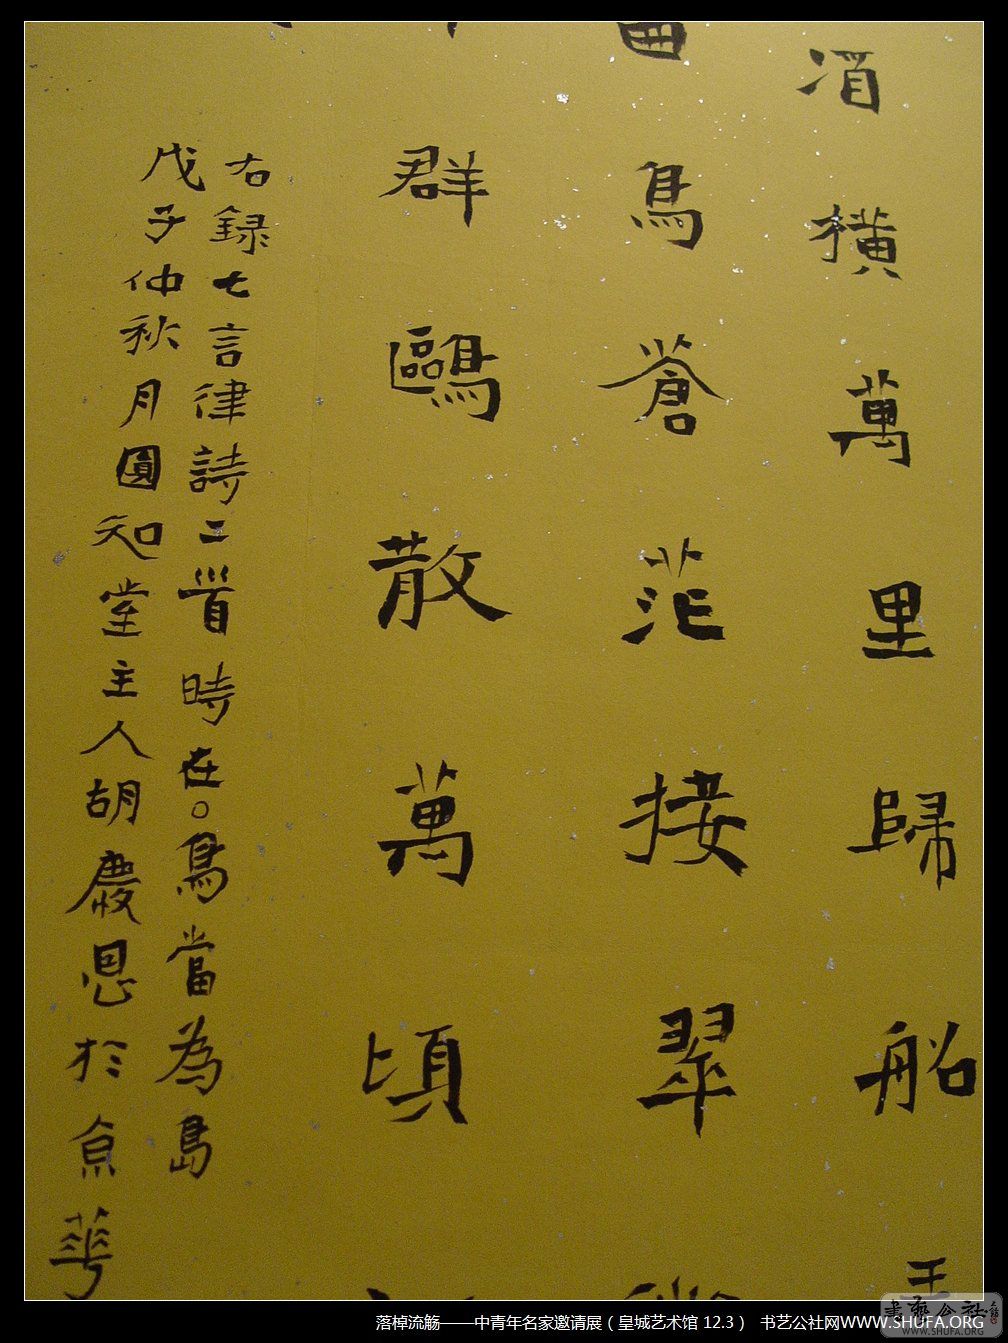 酒橫萬里歸船
曲鳥蒼茫接翠
群鷗散萬頃
右録七言律詩二首時在。鳥當為島
戊子仲秋月圓知堂主人胡慶恩於京華
落棹流觞——中青年名家邀请展（皇城艺术馆 12.3） 书艺公社网WWW.SHUFA.ORG
書藝公社
WWW.SHUFA.ORG